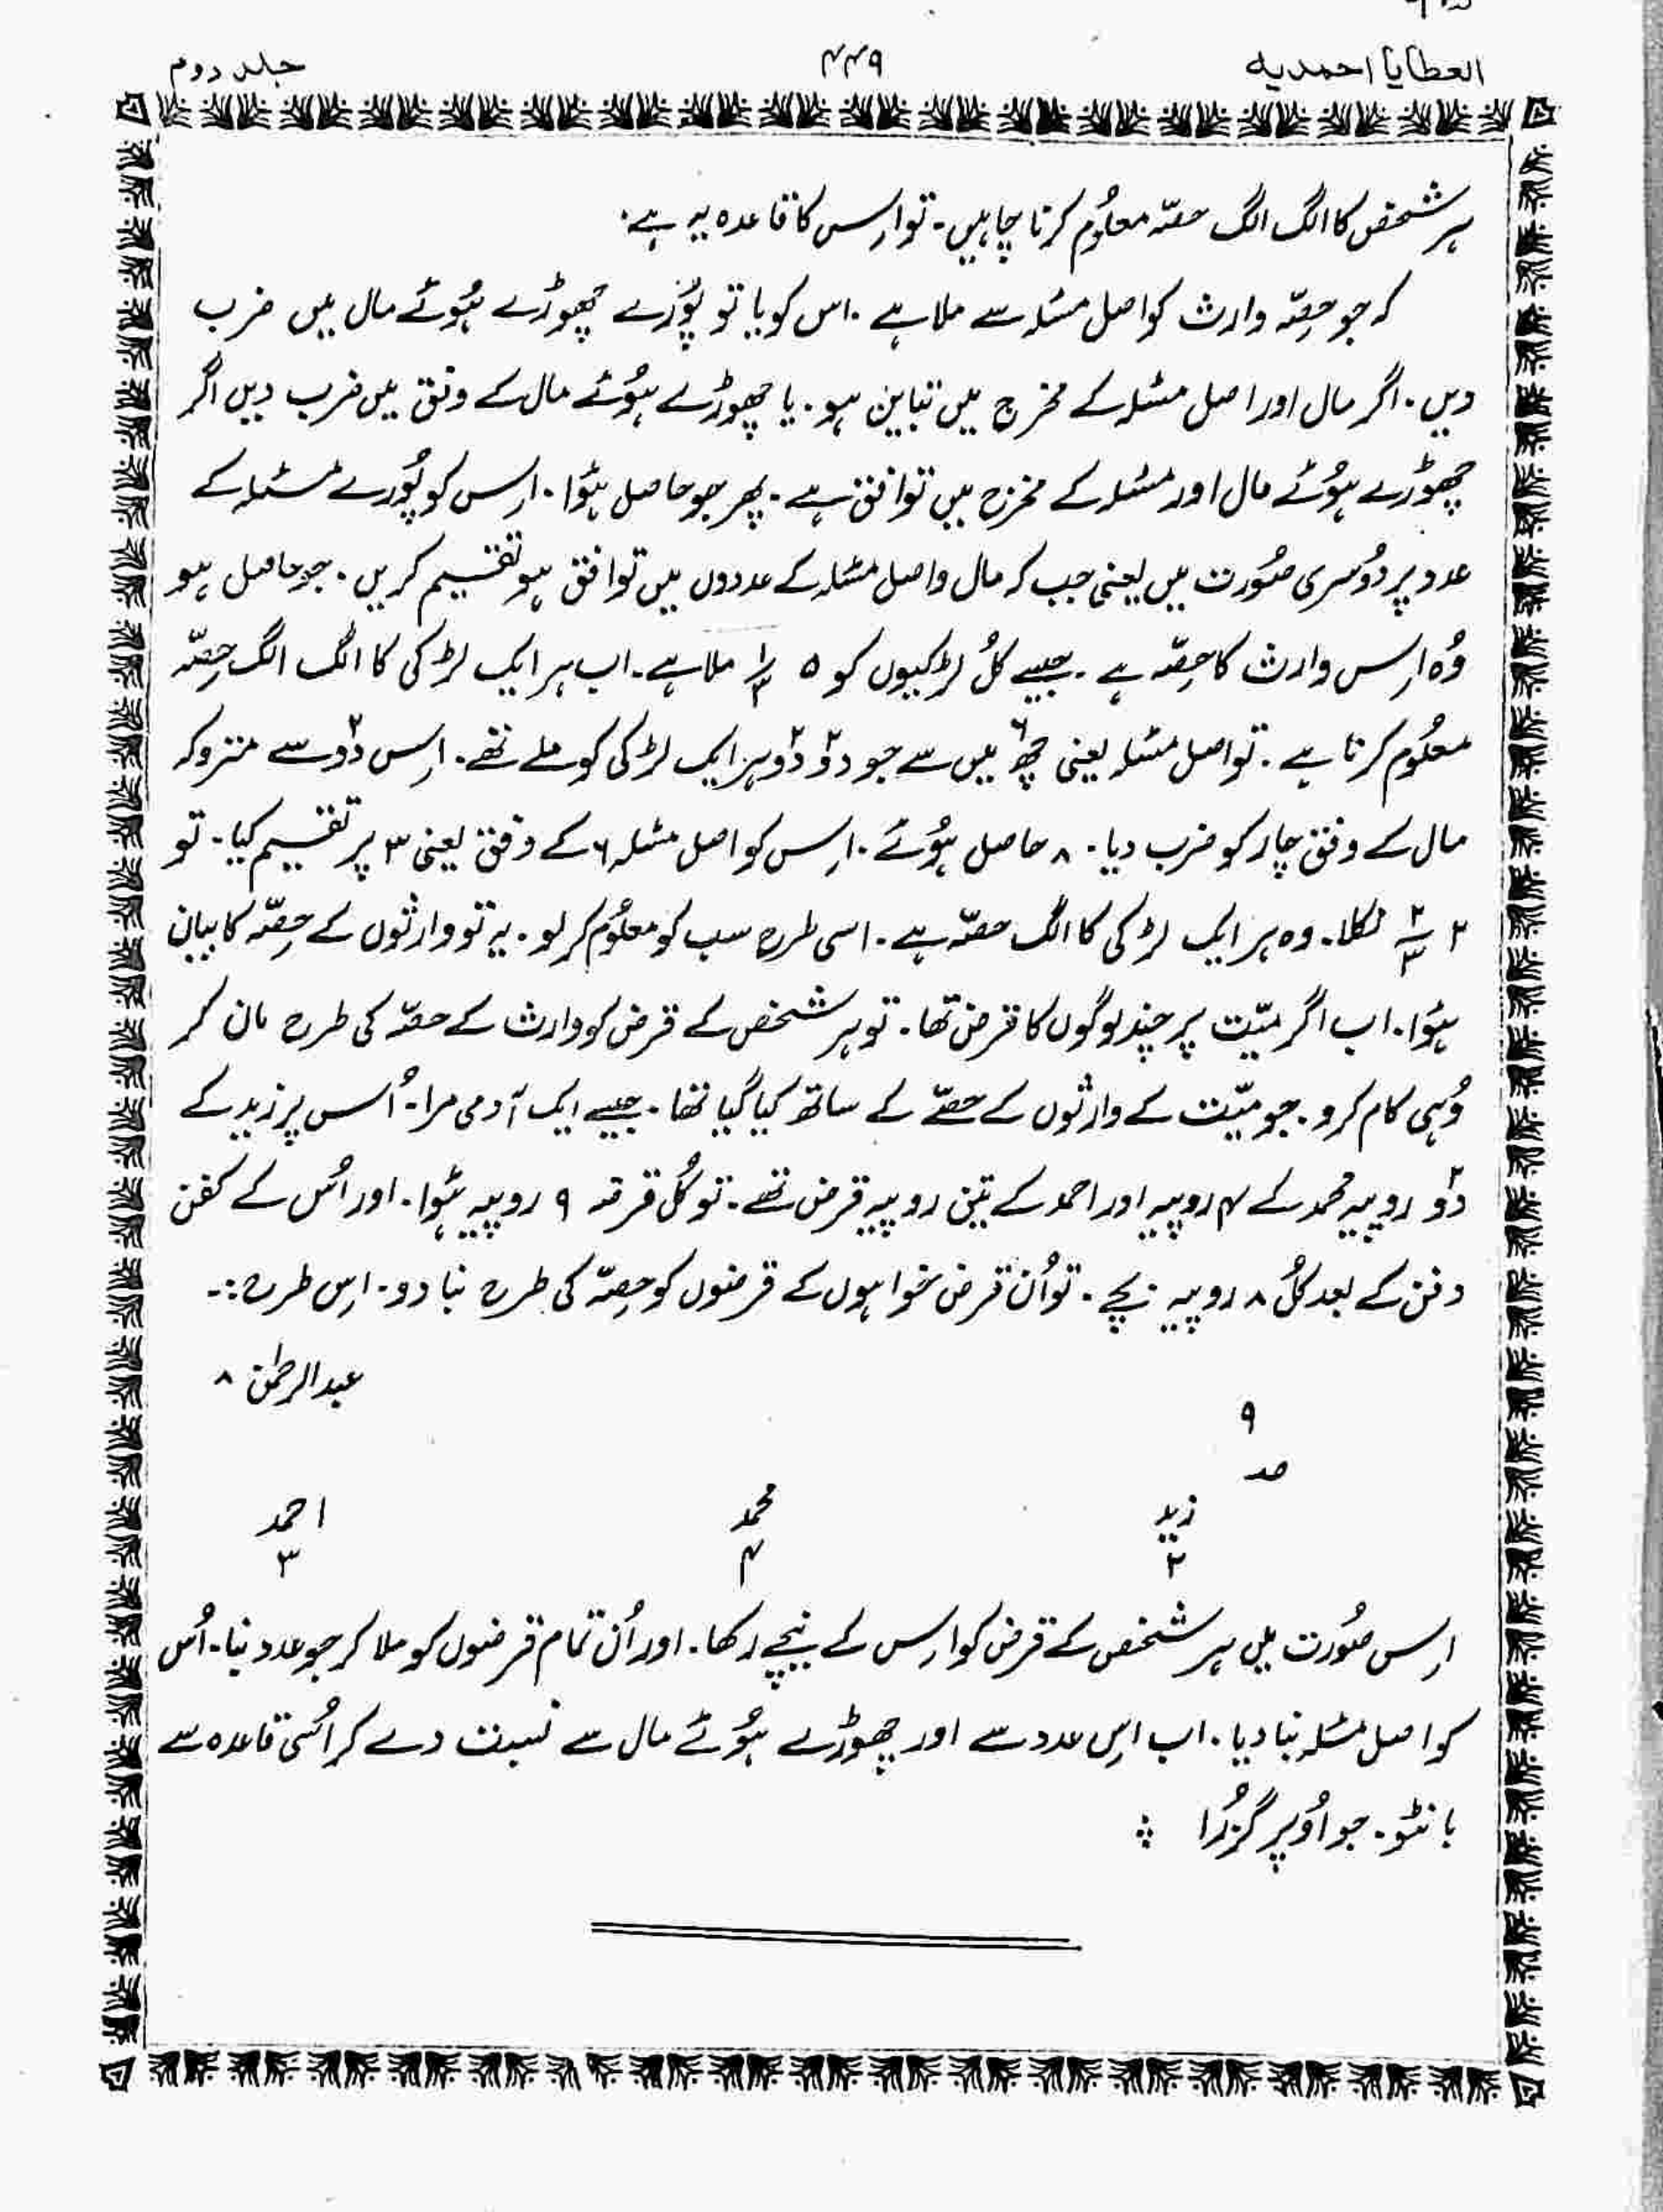 العطایا احمدیہ ۴۴۹ جلد دوم
ہر شخص کا الگ الگ حصّہ معلُوم کرنا چاہیں۔ تو اِس کا قاعدہ یہ ہے۔
کہ جو حِصّہ وارث کو اصل مسئلہ سے ملا ہے۔ اس کو یا تو پُورے چھوڑے ہُوئے مال میں ضرب
دیں۔ اگر مال اور اصل مسئلہ کے مخرج میں تباین ہو۔ یا چھوڑے ہُوئے مال کے وفق میں ضرب دیں اگر
چھوڑے ہُوئے مال اور مسئلہ کے مخرج میں توافق ہے۔ پھر جو حاصل ہؤا۔ اِس کو پُورے مسئلہ کے
عدد پر دُوسری صُورت میں یعنی جب کہ مال و اصل مسئلہ کے عددوں میں توافق ہو تقسیم کریں۔ جو حاصل ہو
وُہ اِس وارث کا حِصّہ ہے۔ جیسے کُل لڑکیوں کو ۵ ۱/۳ ملا ہے۔ اب ہر ایک لڑکی کا الگ الگ حِصّہ
معلُوم کرنا ہے۔ تو اصل مسئلہ یعنی چھ۶ میں سے جو دو۲ دو۲ ہر ایک لڑکی کو ملے تھے۔ اِس دو۲ سے متروکہ
مال کے وفق چار کو ضرب دیا۔ ۸ حاصل ہُوئے۔ اِس کو اصل مسئلہ ۶ کے وفق یعنی ۳ پر تقسیم کیا۔ تو
۲ ۲/۳ نکلا۔ وہ ہر ایک لڑکی کا الگ حصّہ ہے۔ اسی طرح سب کو معلُوم کر لو۔ یہ تو وارثوں کے حِصّہ کا بیان
ہؤا۔ اب اگر میّت پر چند لوگوں کا قرض تھا۔ تو ہر شخص کے قرض کو وارث کے حصّہ کی طرح مان کر
وُہی کام کرو۔ جو میّت کے وارثوں کے حصّے کے ساتھ کیا گیا تھا۔ جیسے ایک آدمی مرا۔ اُس پر زید کے
دو۲ روپیہ محمد کے ۴ روپیہ اور احمد کے تین روپیہ قرض تھے۔ تو کُل قرضہ ۹ روپیہ ہؤا۔ اور اُس کے کفن
دفن کے بعد کُل ۸ روپیہ بچے۔ تو اُن قرض خواہوں کے قرضوں کو حِصّہ کی طرح بنا دو۔ اِس طرح:۔
عبدالرحمٰن ۸
۹
صد
زید محمد احمد
۲ ۴ ۳
اِس صُورت میں ہر شخص کے قرض کو اِس کے نیچے رکھا۔ اور اُن تمام قرضوں کو ملا کر جو عدد بنا۔ اُس
کو اصل مسئلہ بنا دیا۔ اب اِس عدد سے اور چھوڑے ہُوئے مال سے نسبت دے کر اُسی قاعدہ سے
بانٹو۔ جو اُوپر گزُرا